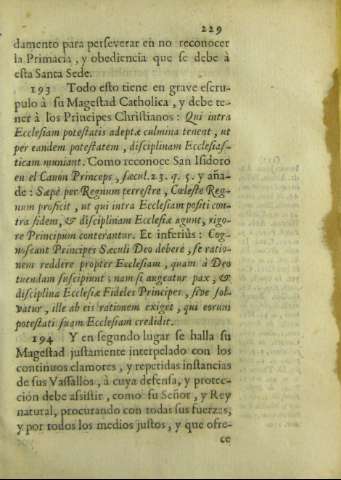 229
damento para perseverar en no reconocer
la Primacia, y obediencia que se debe à
esta Santa Sede.
193 Todo esto tiene en grave escru-
pulo à su Magestad Catholica, y debe te-
ner à los Principes Christianos: Qui intra
Ecclesiam potestatis adeptæ culmina tenent, ut
per eandem potestatem, disciplinam Ecclesias-
ticam muniant. Como reconoce San Isidoro
en el Canon Princeps, sæcul. 23. q. 5. y aña-
de: Sæpè per Regnum terrestre, Cœleste Reg-
num proficit, ut qui intra Ecclesiam positi con-
tra fidem, & disciplinam Ecclesiæ agunt, rigo-
re Principum conterantur. Et inferiùs: Cog-
noscant Principes Sæculi Deo deberè, se ratio-
nem reddere propter Ecclesiam, quam à Deo
tuendam suscipiunt; nam si augeatur pax, &
disciplina Ecclesiæ Fideles Principes, sive sol-
vatur, ille ab eis rationem exiget, qui eorum
potestati suam Ecclesiam credidit.
194 Y en segundo lugar se halla su
Magestad justamente interpelado con los
continuos clamores, y repetidas instancias
de sus Vassallos, à cuya defensa, y protec-
ción debe assistir, como su Señor, y Rey
natural, procurando con todas sus fuerzas,
y por todos los medios justos, y que ofre-
ce